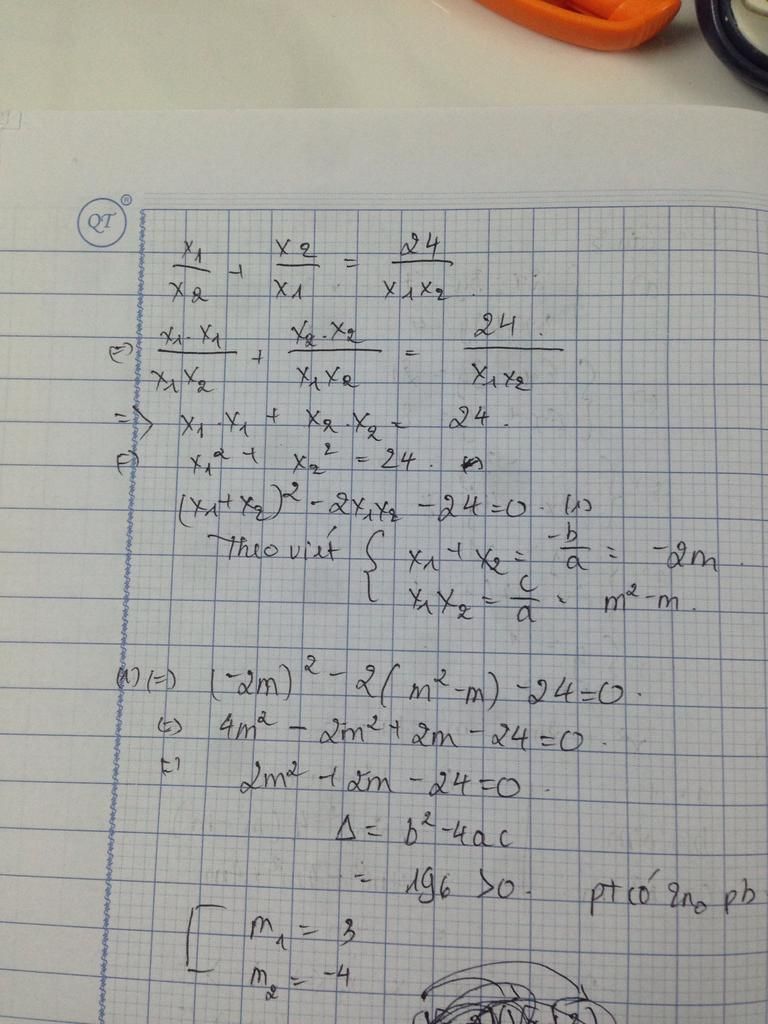 QT ®
x1/x2 + x2/x1 = 24/x1x2
(=) x1.x1/x1x2 + x2.x2/x1x2 = 24/x1x2
=> x1.x1 + x2.x2 = 24.
(=) x1² + x2² = 24.
(x1+x2)² - 2x1x2 - 24 = 0. (1)
Theo viét { x1 + x2 = -b/a = -2m.
x1x2 = c/a = m² - m.
(1) (=) (-2m)² - 2(m² - m) - 24 = 0.
(=) 4m² - 2m² + 2m - 24 = 0.
(=) 2m² + 2m - 24 = 0.
Δ = b² - 4ac
= 196 > 0. pt có 2no pb
[ m1 = 3
m2 = -4